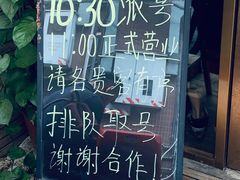 10:30派号
11:00正式营业
请各贵客有序
排队取号
谢谢合作!